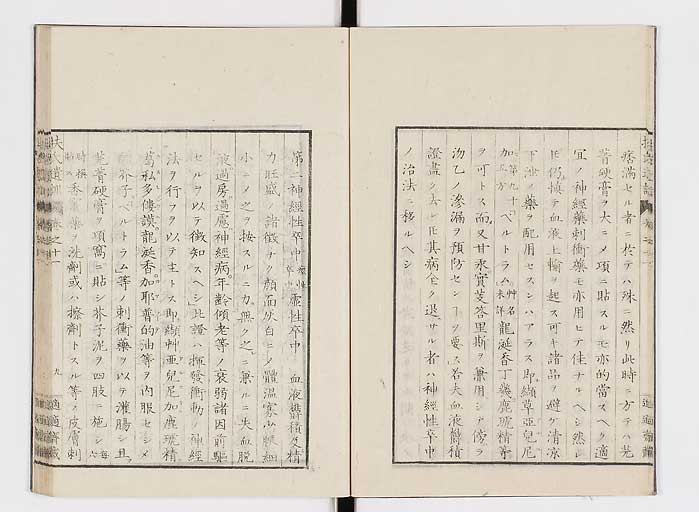 痞滿セル者ニ於テハ殊ニ然リ此時ニ方テハ芫
菁硬膏ヲ大ニメ項ニ貼スルモ亦的當スヘク適
宜ノ神經藥刺衝藥モ亦用ヒテ佳ナルヘシ然レ
𪜈仍愼テ血液上輸ヲ起ス可キ諸品ヲ避ケ清凉
下泄ノ藥ヲ配用セスンハアラス即纈草亞兒尼
加 第九十 方 ベルトラム 艸名 未詳 龍涎香丁幾鹿琥精等
ヲ可トス而又甘汞實芰答里斯ヲ兼用シテ傍ラ
汤乙ノ滲漏ヲ預防センヿヲ要ス若夫血液鬱積
證盡ク去レ𪜈其病全ク退サル者ハ神經性卒中
ノ治法ニ移ルヘシ
第二神經性卒中 虛性卒中 血液鬱積及精
力旺盛ノ諸徴ナク顔面灰白ニメ體溫寡少脈細
小ニメ之ヲ按スルニ力無ク之ニ兼ルニ失血脫
液過房過慮神經病年齡傾老等ノ衰弱諸因前驅
セルヲ以テ徴知スヘシ此證ハ揮發衝動ノ神經
法ヲ行フヲ以テ主トス即纈艸亞兒尼加鹿琥精
葛私多僂謨龍涎香加耶普的油等ヲ內服セシメ
芥子ベルトラム等ノ刺衝藥ヲ以テ灌腸シ且
芫菁硬膏ヲ項窩ニ貼シ芥子泥ヲ四肢ニ施シ
香竄藥ヲ洗劑或ハ擦劑トスル等ノ皮膚刺
扶氏遺訓 卷之十一 九 適適齋藏